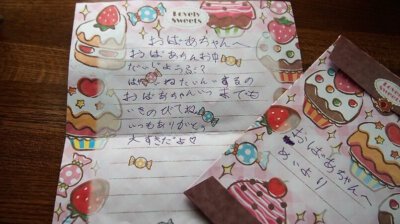 Lovely
Sweets
おばあちゃんへ
おばあちゃんおなか
だいじょうぶ?
おばあちゃんいつまでも
いきのびてね。
いつもありがとう
大すきだよ♡
おばあちゃんへ
めいより